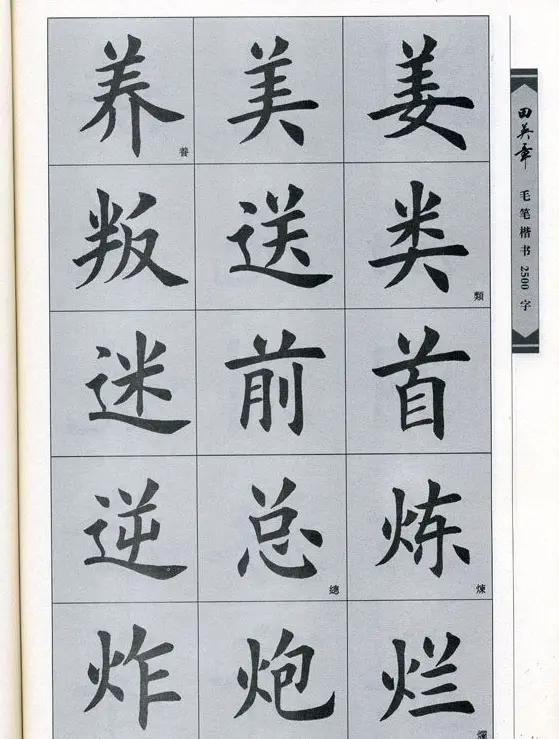 养養 美 姜
叛 送 类類
迷 前 首
逆 总總 炼煉
炸 炮 烂爛
田英章 毛笔楷书2500字